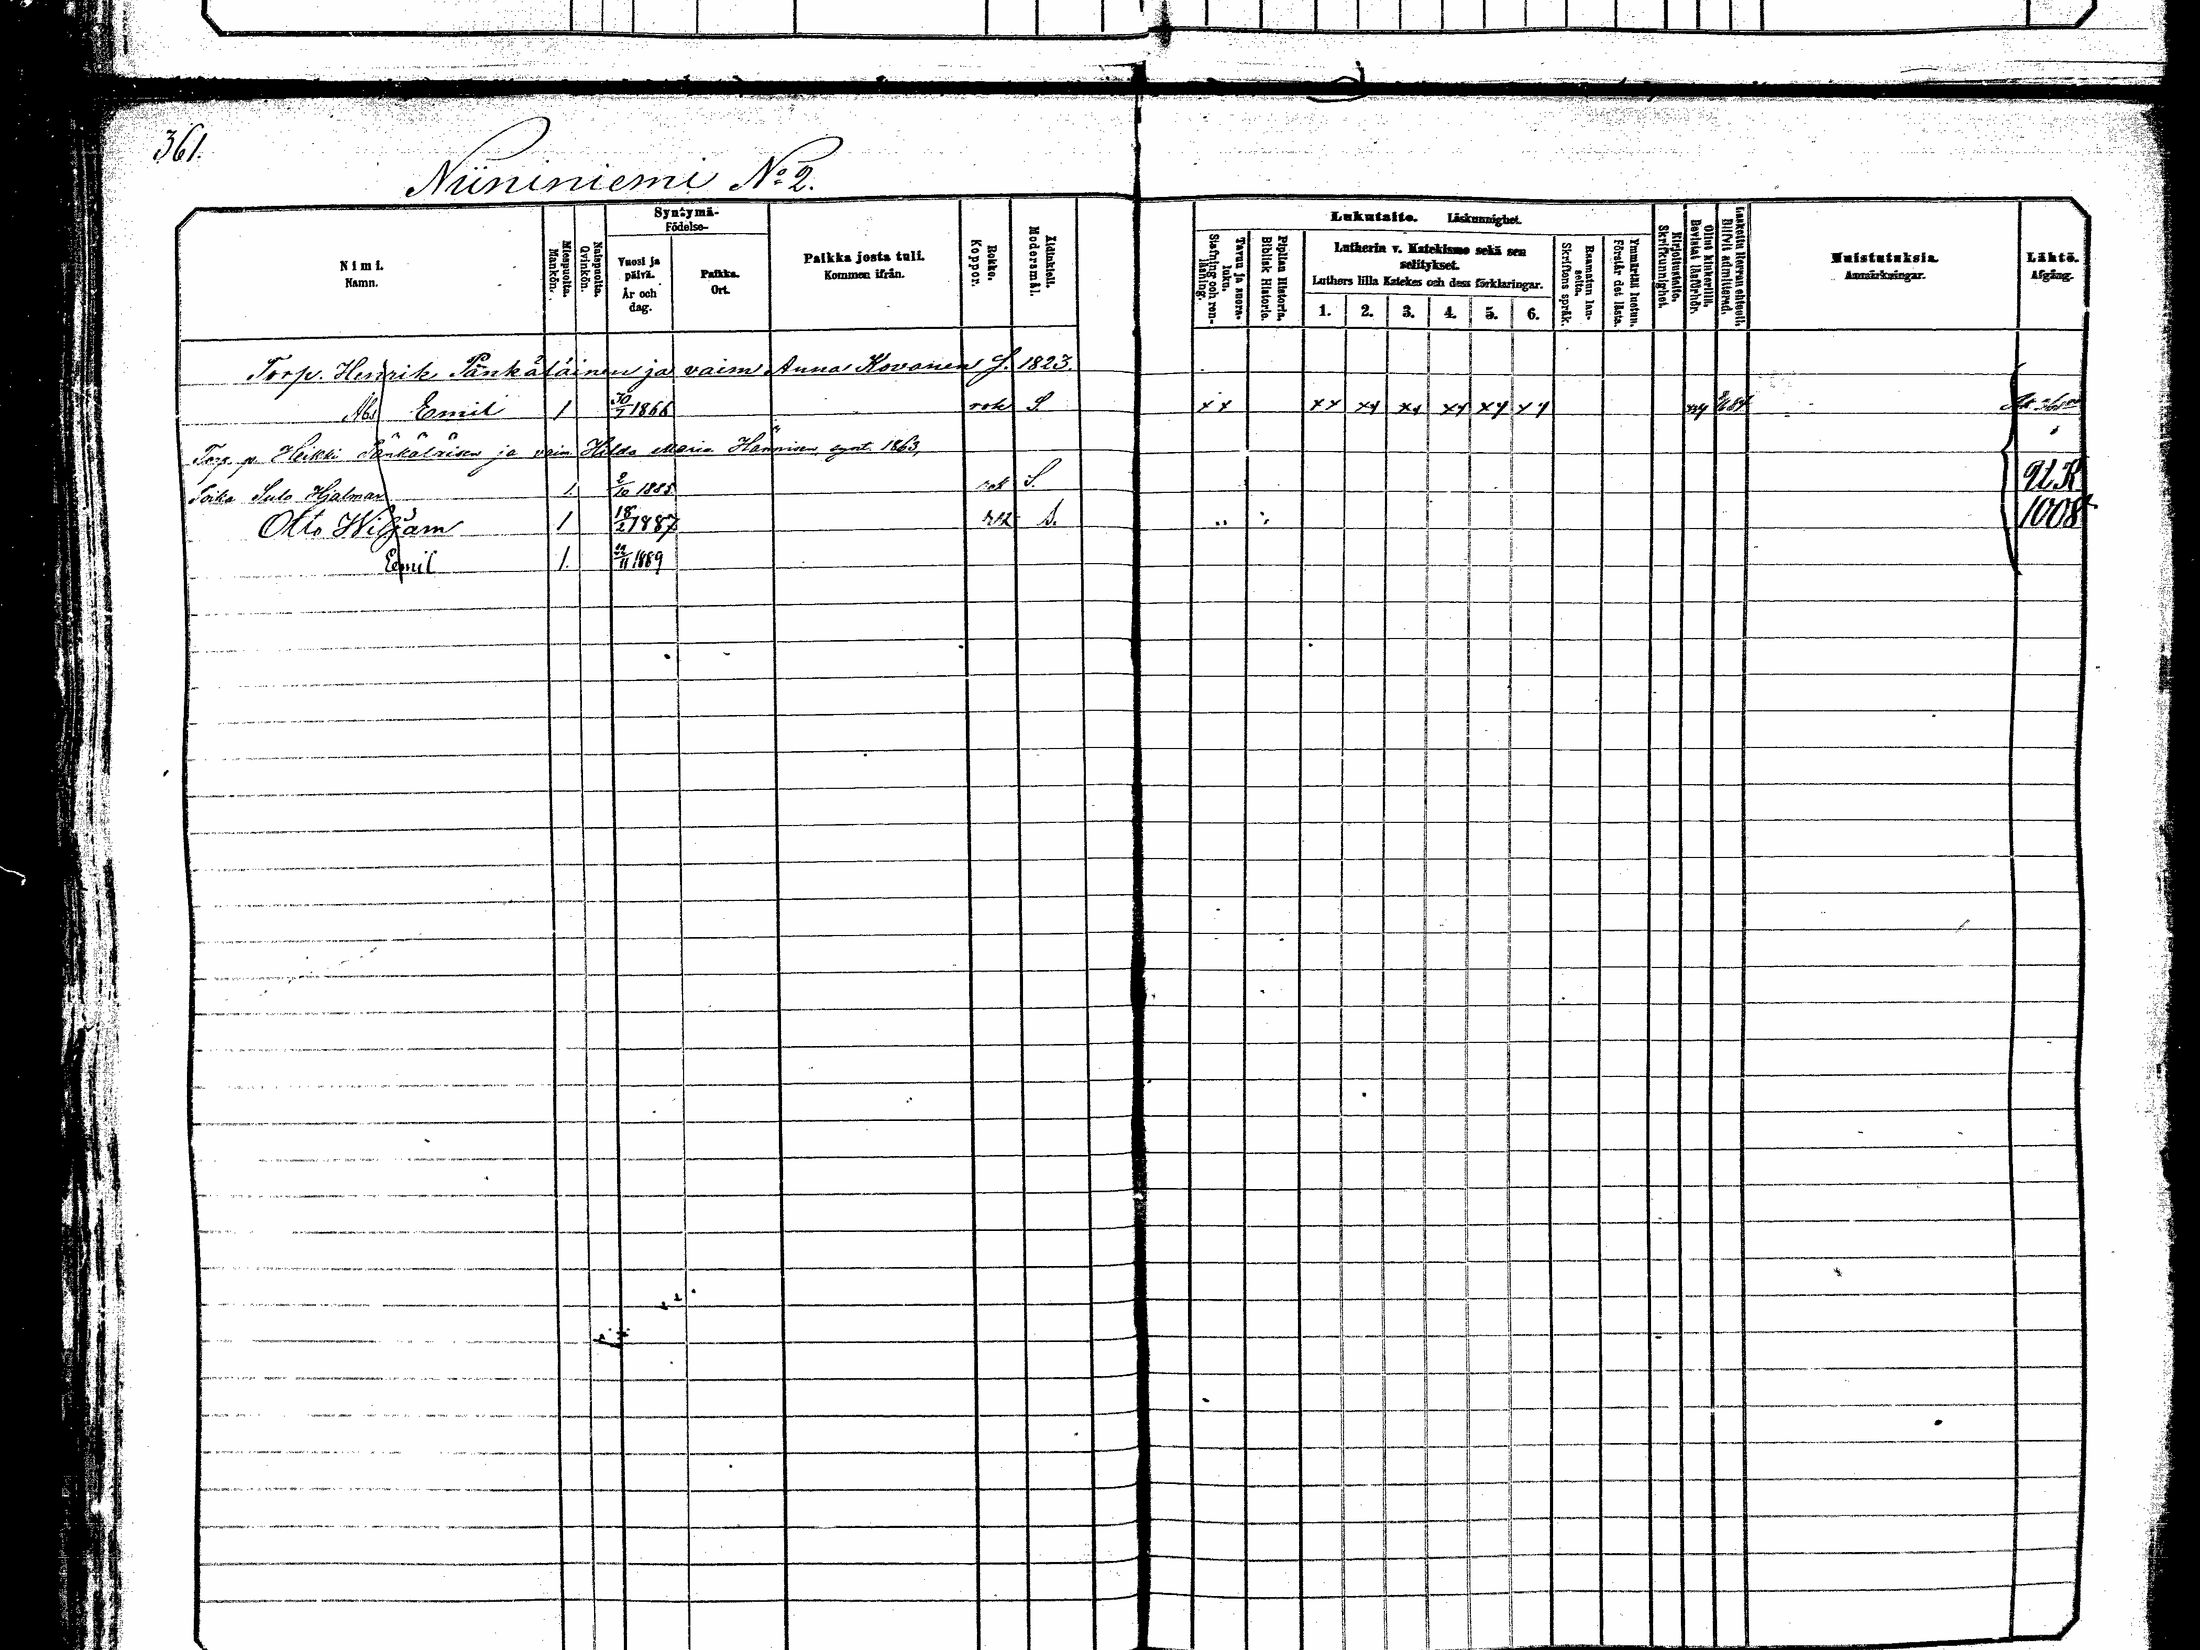 361.
Niininiemi No 2.
Nimi.
Namn.
Miespuolta.
Mankön.
Naispuolta.
Qvinkön.
Syntymä-
Födelse-
Vuosi ja päivä.
År och dag.
Paikka.
Ort.
Paikka josta tuli.
Kommen ifrån.
Rokko.
Koppor.
Äidinkieli.
Modersmål.
Lukutaito. Läskunnighet.
Tavuu ja suora-luku.
Stafning och ren-läsning.
Piplian Historia.
Biblisk Historie.
Lutherin v. Katekismo sekä sen selitykset.
Luthers lilla Katekes och dess förklaringar.
1. 2. 3. 4. 5. 6.
Raamatun lau-seita.
Skriftens språk.
Ymmärtää luetun.
Förstår det lästa.
Kirjoitustaito.
Skrifkunnighet.
Ollut kinkerillä.
Bevistat läsförhör.
Laskettu Herran ehtooll.
Blifvit admitterad.
Muistutuksia.
Anmärkningar.
Lähtö.
Afgång.
Torp. Henrik Pänkäläinen ja vaim. Anna Kovanen S. 1823.
Emil 1 30/7 1866 rok S. xx xx xy xy xy xy xy
Torp. p. Heikki Pänkäläisen ja vaim. Hilda Maria Hänninen, synt. 1863,
Poika Sulo Hjalmar 1. 2/10 1885 rok S.
Otto Wiljam 1 18/2 1887 rok S.
Eemil 1. 22/11 1889
U.K
1008